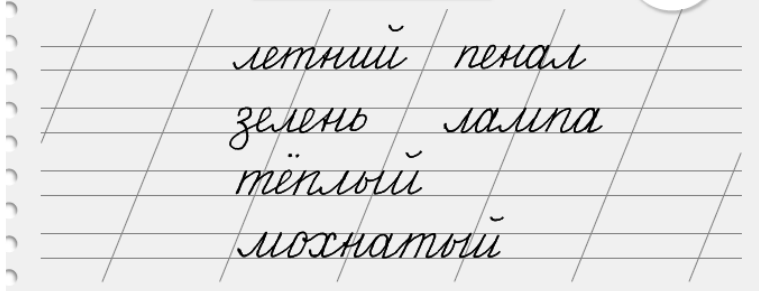 летний пенал
зелень лампа
тёплый
мохнатый